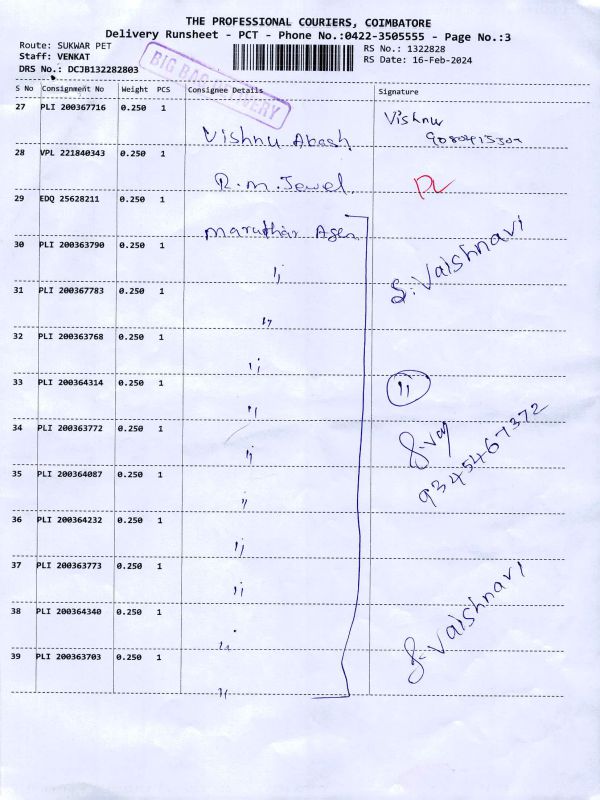 THE PROFESSIONAL COURIERS, COIMBATORE
Delivery Runsheet - PCT - Phone No.:0422-3505555 - Page No.:3
Route: SUKWAR PET
RS No.: 1322828
Staff: VENKAT
RS Date: 16-Feb-2024
DRS No.: DCJB132282803
BIG BAG DELIVERY
S No Consignment No Weight PCS Consignee Details Signature
27 PLI 200367716 0.250 1
Vishnu
Vishnu Abash
28 VPL 221840343 0.250 1
R.m. Jewel
29 EDQ 25628211 0.250 1
maruthar Agen
30 PLI 200363790 0.250 1
S. Vaishnavi
ıj
31 PLI 200367783 0.250 1
ıj
32 PLI 200363768 0.250 1
ıj
33 PLI 200364314 0.250 1
11
ıj
34 PLI 200363772 0.250 1
S. Vai
ıj
9345467372
35 PLI 200364087 0.250 1
ıj
36 PLI 200364232 0.250 1
ıj
37 PLI 200363773 0.250 1
ıj
38 PLI 200364340 0.250 1
S. Vaishnavi
39 PLI 200363703 0.250 1
ıj